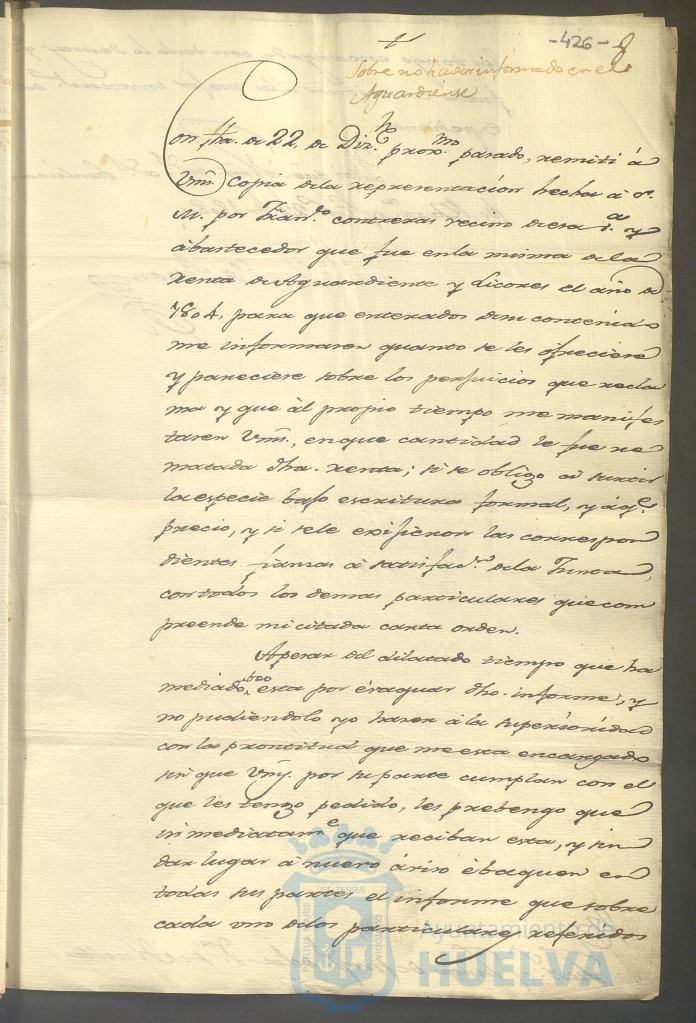 -426-
Sobre no haver informado en el
Aguardiente
Con fha. de 22, de Dizre. proxmo. pasado, remiti à
Vms. Copia dela representación hecha à S.
M. por Franco. contreras vecino de esa va. y
abastecedor que fue enla misma de la
renta de Aguardiente y Licores el año de
1804, para que enterados desu contenido
me informaren quanto se les ofreciere
y pareciere sobre los perjuicios que recla
ma y que àl propio tiempo me manifes
taren Vms., en que cantidad le fue re
matada dha. renta; si se obligo ài surtir
la especie bajo escritura formal, y àqe.
precio, y si sele exijieron las correspon
dientes fianzas à satisfacn. dela Junta,
con todos los demas particulares que com
preende mi citada carta orden.
Apesar del dilatado tiempo que ha
mediado, esta por évaquar dho. informe, y
no pudiendolo yo hacer à la superioridad
con la prontitud que me esta encargado
sin que Vms. por su parte cumplan con el
que les tengo pedido, les prebengo que
inmediatame. que reciban esta, y sin
dar lugar à nuevo àviso èbaquen en
todas sus partes el informe que sobre
cada uno delos particulares referidos
Ayuntamiento de
HUELVA